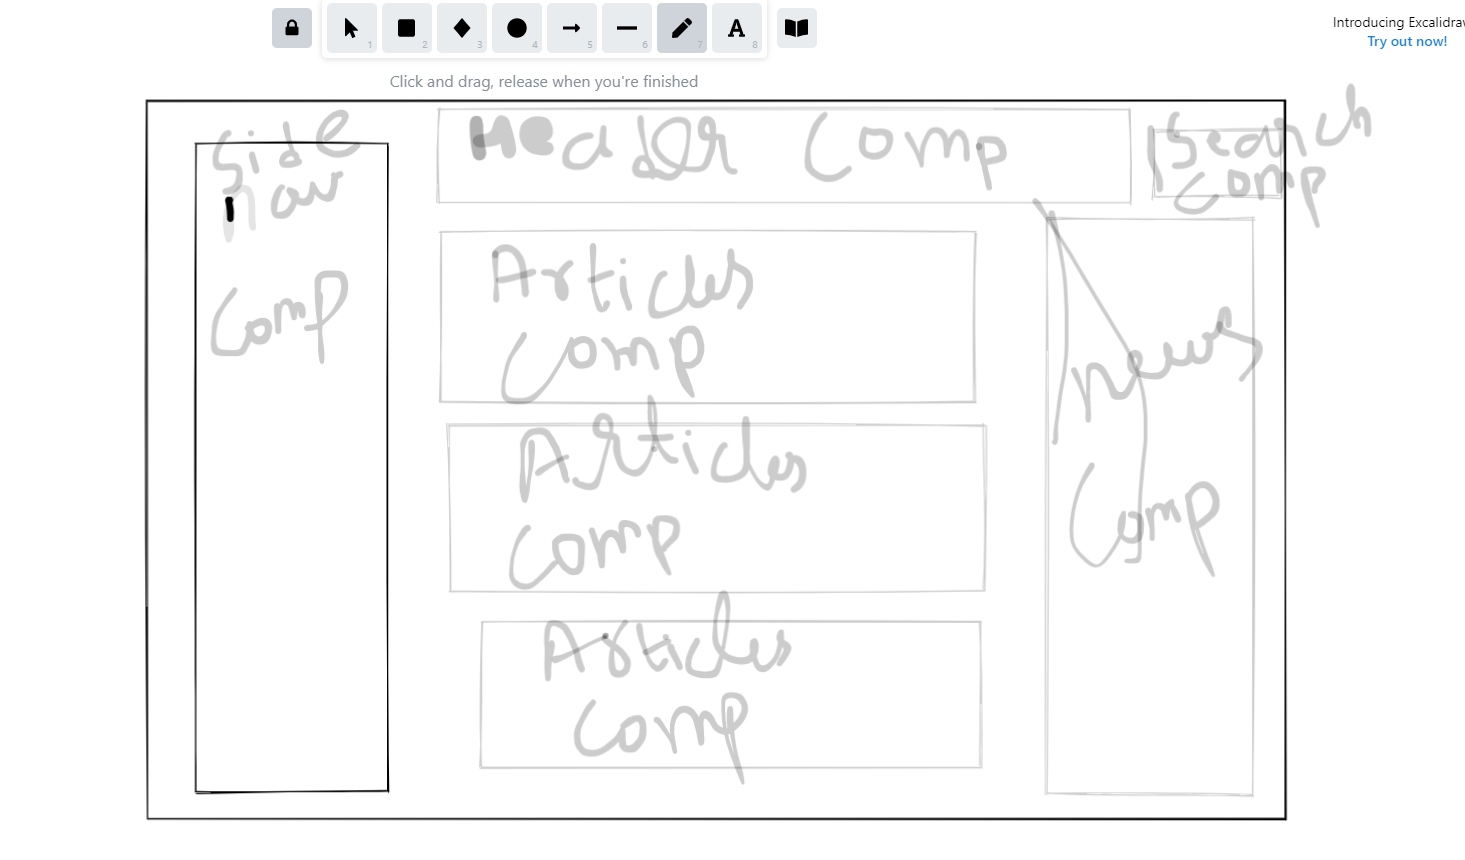 1
2
3
4
5
6
7
A
8
Introducing Excalidra
Try out now!
Click and drag, release when you're finished
Side
nav
Comp
Header Comp
Search
Comp
Articles
Comp
news
Comp
Articles
Comp
Articles
Comp